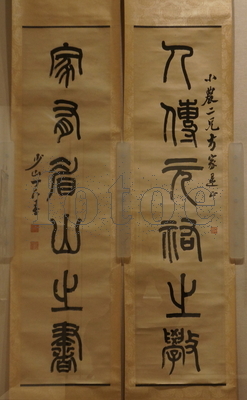 小農二兄方家
人傳元祐之斆
家有眉山之書
少山